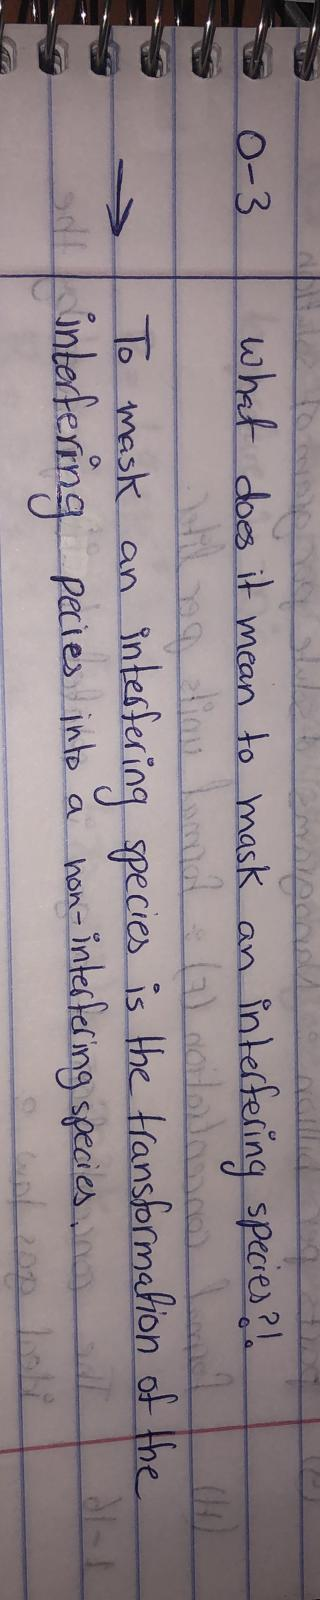 0-3 What does it mean to mask an interfering species?!
→ To mask an interfering species is the transformation of the
interfering pecies into a non-interfering species.